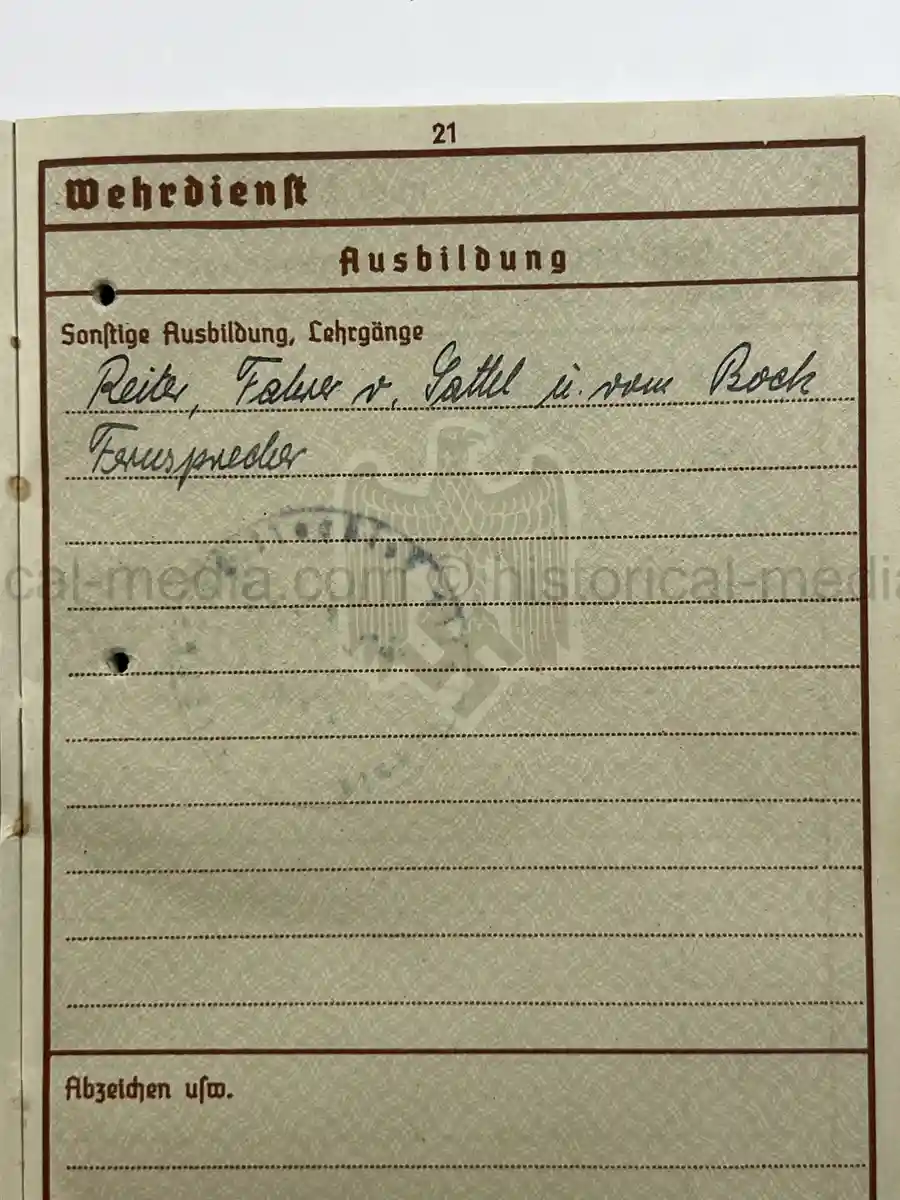 21
Wehrdienst
Ausbildung
Sonstige Ausbildung, Lehrgänge
Reiter, Fahrer v. Sattel u. vom Bock
Fernsprecher
cal-media.com © historical-media
Abzeichen usw.